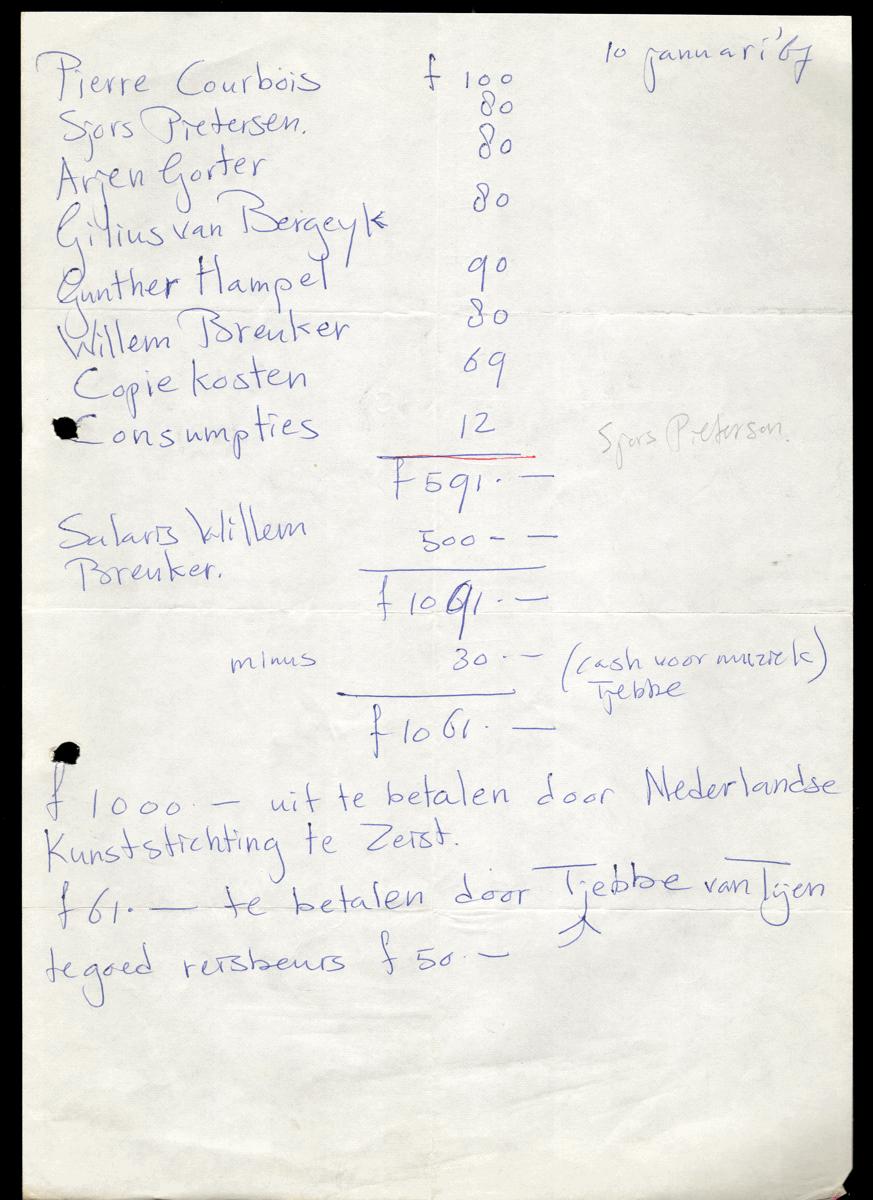 10 januari '67
Pierre Courbois f 100
Sjors Pietersen. 80
Arjen Gorter 80
Gilius van Bergeyk 80
Gunther Hampel 90
Willem Breuker 80
Copie kosten 69
Consumpties 12
Sjors Pieterson.
f 591.—
Salaris Willem 500 - —
Breuker.
f 1091.—
minus 30.— (cash voor muziek)
Tjebbe
f 1061.—
f 1000.— uit te betalen door Nederlandse
Kunststichting te Zeist.
f 61.— te betalen door Tjebbe van Tijen
tegoed reisbeurs f 50.—